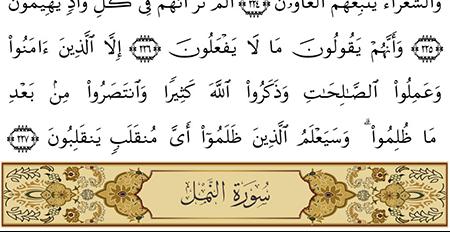 وَالشُّعَرَآءُ يَتَّبِعُهُمُ الْغَاوُۥنَ ﴿٢٢٤﴾ أَلَمْ تَرَ أَنَّهُمْ فِى كُلِّ وَادٍ يَهِيمُونَ
﴿٢٢٥﴾ وَأَنَّهُمْ يَقُولُونَ مَا لَا يَفْعَلُونَ ﴿٢٢٦﴾ إِلَّا الَّذِينَ ءَامَنُوا۟
وَعَمِلُوا۟ الصَّـٰلِحَـٰتِ وَذَكَرُوا۟ اللَّهَ كَثِيرًا وَانتَصَرُوا۟ مِنۢ بَعْدِ
مَا ظُلِمُوا۟ ۗ وَسَيَعْلَمُ الَّذِينَ ظَلَمُوٓا۟ أَىَّ مُنقَلَبٍ يَنقَلِبُونَ ﴿٢٢٧﴾
سُورَةُ النَّمْلِ